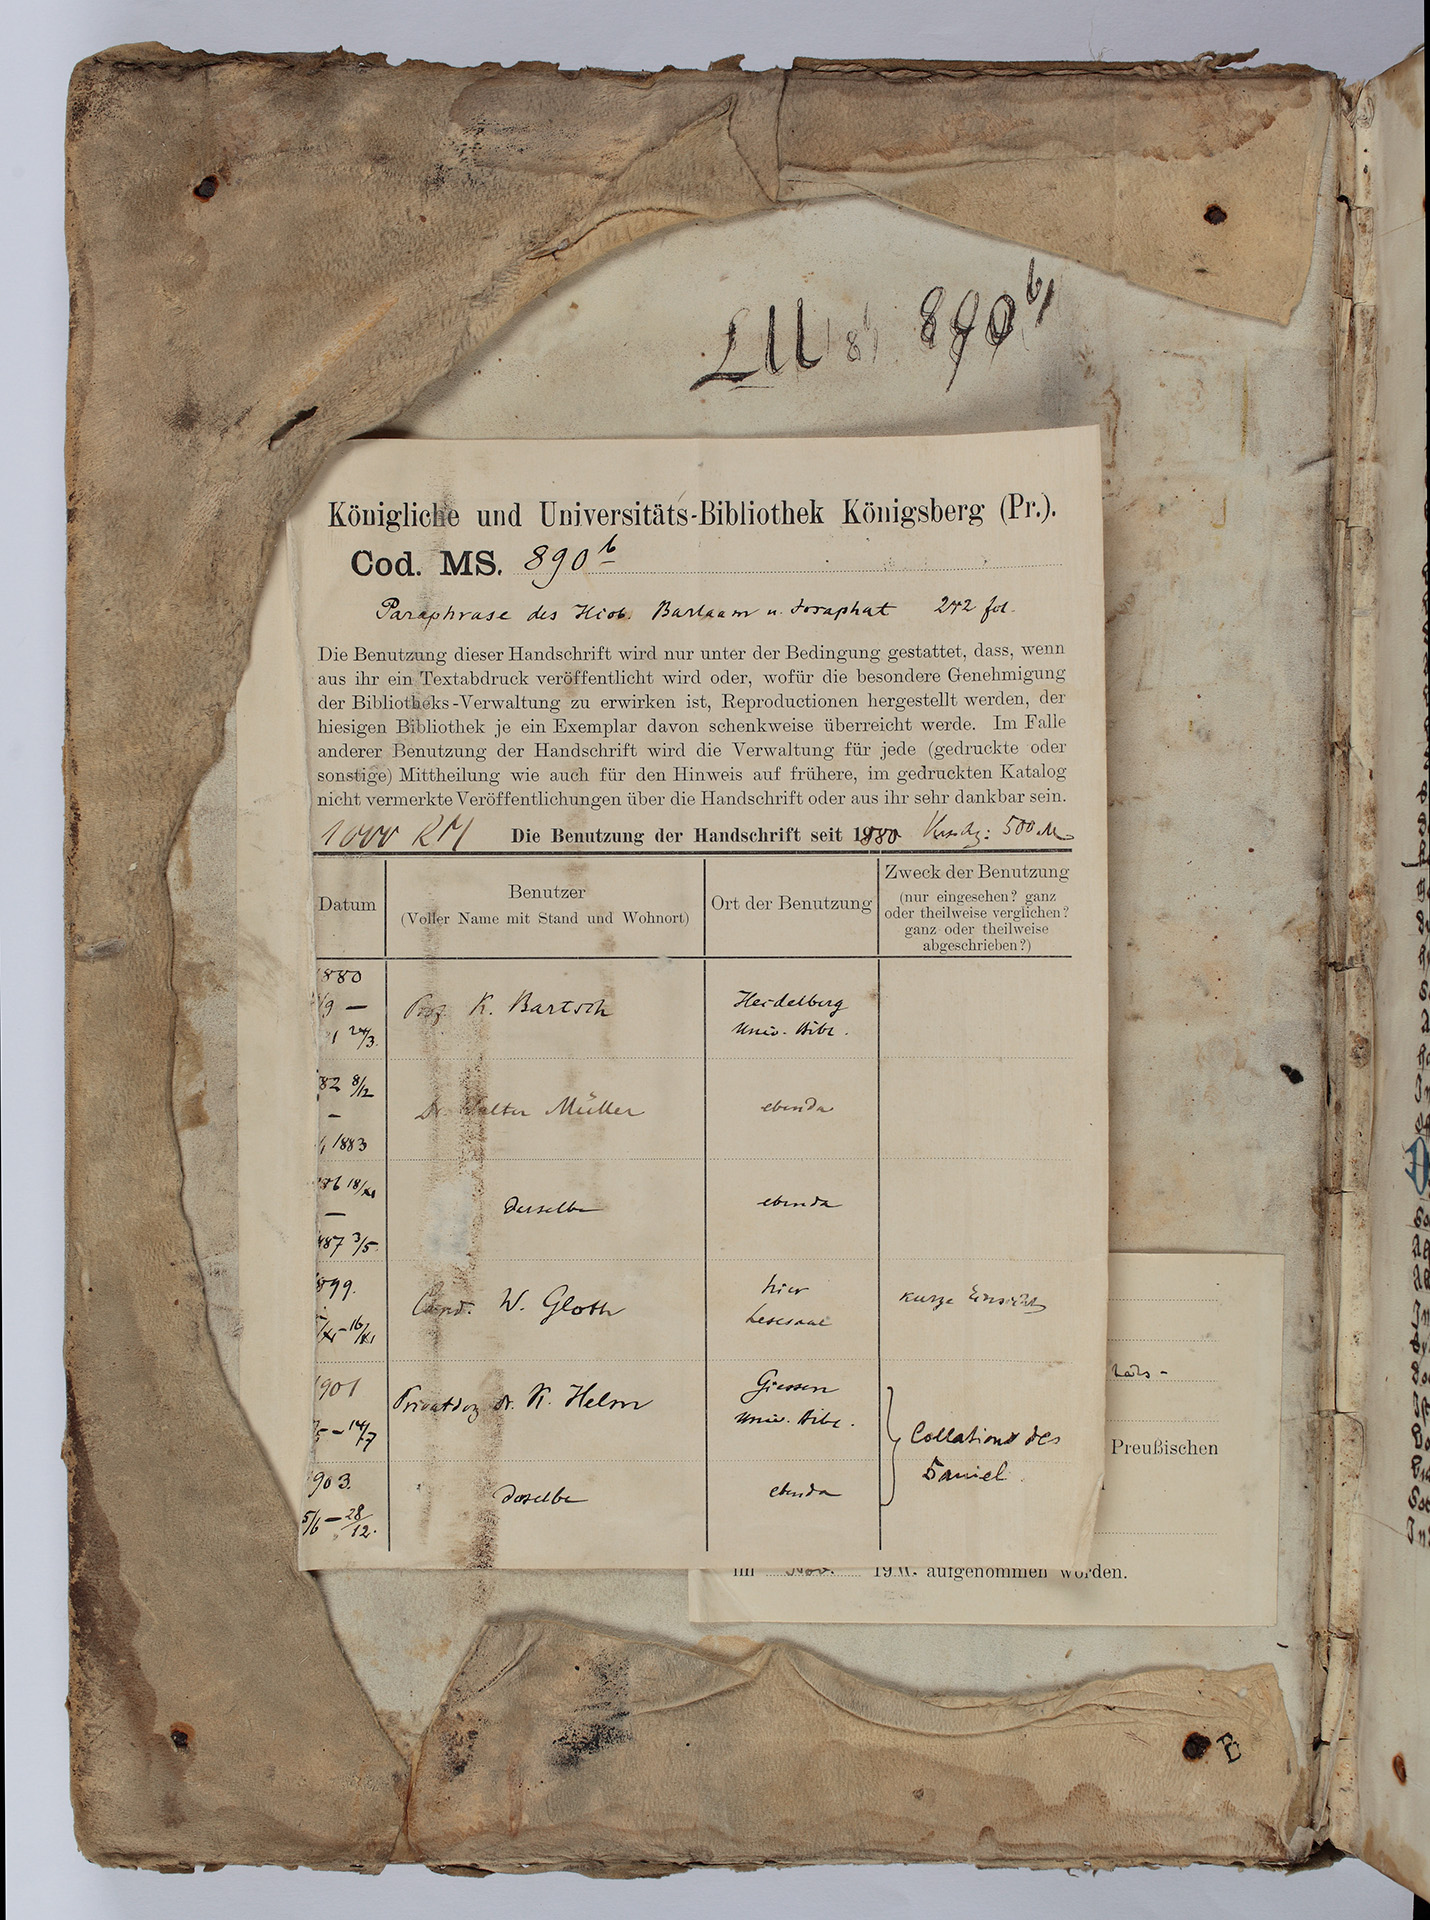 890 b
Königliche und Universitäts-Bibliothek Königsberg (Pr.).
Cod. MS. 890 b
Paraphrase des Hiob. Barlaam u. Josaphat 242 fol.
Die Benutzung dieser Handschrift wird nur unter der Bedingung gestattet, dass, wenn
aus ihr ein Textabdruck veröffentlicht wird oder, wofür die besondere Genehmigung
der Bibliotheks-Verwaltung zu erwirken ist, Reproductionen hergestellt werden, der
hiesigen Bibliothek je ein Exemplar davon schenkweise überreicht werde. Im Falle
anderer Benutzung der Handschrift wird die Verwaltung für jede (gedruckte oder
sonstige) Mittheilung wie auch für den Hinweis auf frühere, im gedruckten Katalog
nicht vermerkte Veröffentlichungen über die Handschrift oder aus ihr sehr dankbar sein.
1000 RM Die Benutzung der Handschrift seit 1880 500 M
Datum
Benutzer
(Voller Name mit Stand und Wohnort)
Ort der Benutzung
Zweck der Benutzung
(nur eingesehen? ganz
oder theilweise verglichen?
ganz oder theilweise
abgeschrieben?)
1880
/9 —
1 24/3.
Prof. K. Bartsch
Heidelberg
Univ. Bibl.
82 8/12
—
1883
Dr. Walter Müller
ebenda
86 18/XI
—
87 3/5.
Derselbe
ebenda
1899.
/XI - 16/XI
Cand. W. Gloth
hier
Lesesaal
kurze Einsicht
1901
/5 - 14/7
Privatdoz Dr. K. Helm
Giessen
Univ. Bibl.
Collation des
Daniel.
1903.
5/6 - 28/12.
Derselbe
ebenda
Preußischen
im Nov. 19 aufgenommen worden.
B